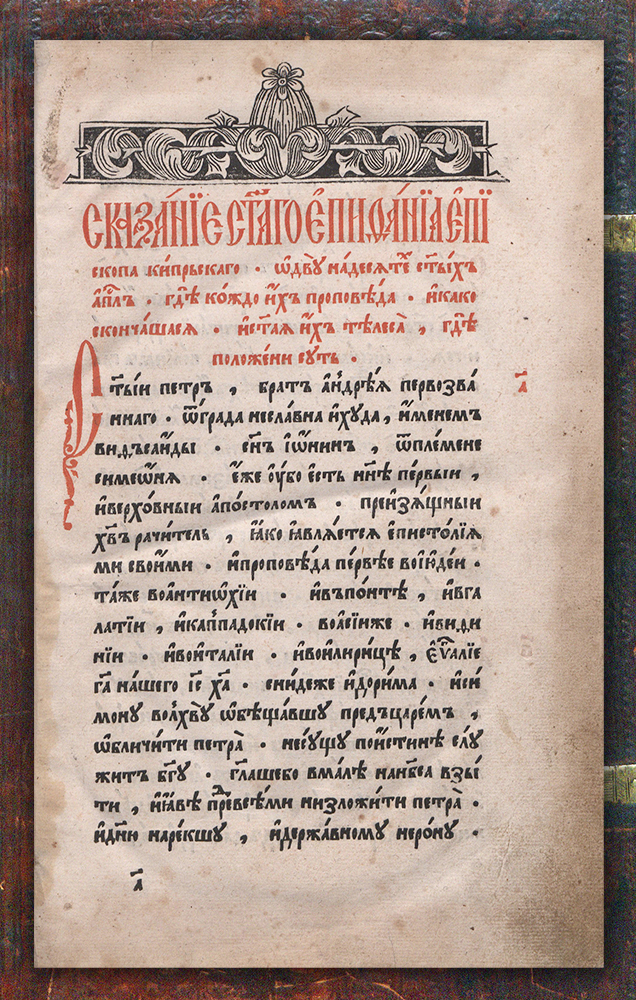 СКАЗА́НЇЕ СТ҃А́ГО Е҆ПИФА́НЇА Е҆ПЇ
скопа ки́прьскаго · ѡ҆двꙋ̀ на́десѧте ст҃ы́хъ
а҆пл҃ъ · гдѣ̀ ко́ждо и҆́хъ проповѣ́да · и҆ка́ко
сконча́шасѧ · и҆ст҃а́ѧ и҆́хъ тѣлеса̀ , гдѣ̀
положе́ни сꙋть ·
Ст҃ы́и пе́тръ , бра́тъ а҆ндрѣ́ѧ первозва́
ннаго · ѿгра́да несла́вна и҆хꙋ́да , и҆́менемъ
виѳъсаи́ды · сн҃ъ і҆ѡ́нинъ , ѿпле́мене
симеѡ́нѧ · є҆́же ᲂу҆́бо є҆́сть нн҃ѣ пе́рвыи ,
и҆верхо́вныи а҆по́столомъ · преизѧ́щныи
хв҃ъ рачи́тель , ꙗ҆́ко ꙗ҆влѧ́етсѧ е҆писто́лїѧ
ми свои́ми · и҆проповѣ́да пе́рвѣе вої҆ю́деи ·
та́же воа҆нтиѡхі́и · и҆въпо́нтѣ , и҆вга
ла́тїи , и҆каппадокі́и · воа҆сі́иже · и҆виѳи
ні́и · и҆вои҆та́лїи · и҆вои҆лири́цѣ , є҆ѵⷢ҇а́лїе
гд҃а на́шего і҆с҃ х҃а · сни́деже и҆дори́ма · и҆си́
монꙋ волхвꙋ̀ ѡ҆бѣща́вшꙋ предъцаре́мъ ,
ѡ҆бличи́ти петра̀ · несꙋ́щꙋ пои́стинѣ слꙋ
жи́тъ бг҃ꙋ · гл҃а́шебо вма́лѣ нанбс҃а взы́
ти , и҆ꙗ҆́вѣ пре́двсѣ́ми низложи́ти петра̀ ·
и҆дн҃ю наре́кшꙋ , и҆держа́вномꙋ неро́нꙋ ·
а҃
а҃